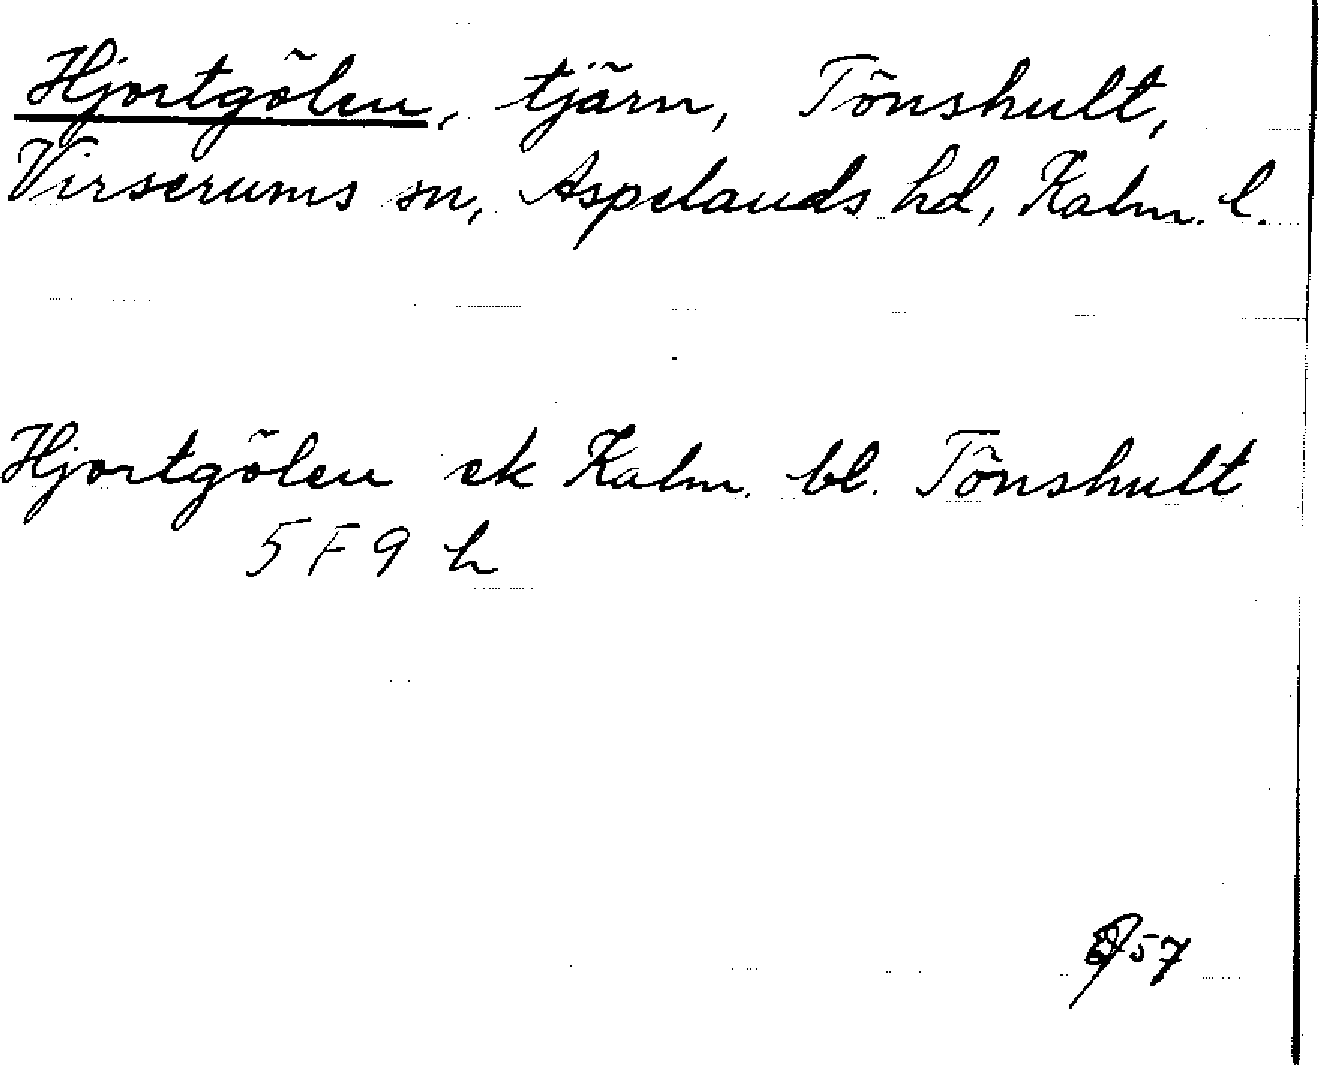 Hjortgölen, tjärn, Tönshult,
Virserums sn, Aspelands hd, Kalm. l.
Hjortgölen ek Kalm. bl. Tönshult
5 F 9 h
57